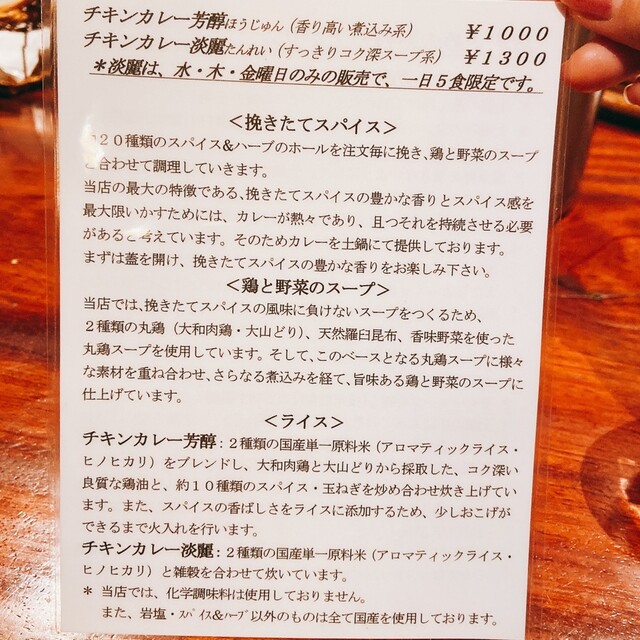 チキンカレー芳醇ほうじゅん（香り高い煮込み系） ￥１０００
チキンカレー淡麗たんれい（すっきりコク深スープ系） ￥１３００
＊淡麗は、水・木・金曜日のみの販売で、一日５食限定です。
＜挽きたてスパイス＞
２０種類のスパイス&ハーブのホールを注文毎に挽き、鶏と野菜のスープ
と合わせて調理していきます。
当店の最大の特徴である、挽きたてスパイスの豊かな香りとスパイス感を
最大限いかすためには、カレーが熱々であり、且つそれを持続させる必要
があると考えています。そのためカレーを土鍋にて提供しております。
まずは蓋を開け、挽きたてスパイスの豊かな香りをお楽しみ下さい。
＜鶏と野菜のスープ＞
当店では、挽きたてスパイスの風味に負けないスープをつくるため、
２種類の丸鶏（大和肉鶏・大山どり）、天然羅臼昆布、香味野菜を使った
丸鶏スープを使用しています。そして、このベースとなる丸鶏スープに様々
な素材を重ね合わせ、さらなる煮込みを経て、旨味ある鶏と野菜のスープに
仕上げています。
＜ライス＞
チキンカレー芳醇：２種類の国産単一原料米（アロマティックライス・
ヒノヒカリ）をブレンドし、大和肉鶏と大山どりから採取した、コク深い
良質な鶏油と、約１０種類のスパイス・玉ねぎを炒め合わせ炊き上げてい
ます。また、スパイスの香ばしさをライスに添加するため、少しおこげが
できるまで火入れを行います。
チキンカレー淡麗：２種類の国産単一原料米（アロマティックライス・
ヒノヒカリ）と雑穀を合わせて炊いています。
＊ 当店では、化学調味料は使用しておりません。
また、岩塩・ｽﾊﾟｲｽ&ﾊｰﾌﾞ以外のものは全て国産を使用しております。